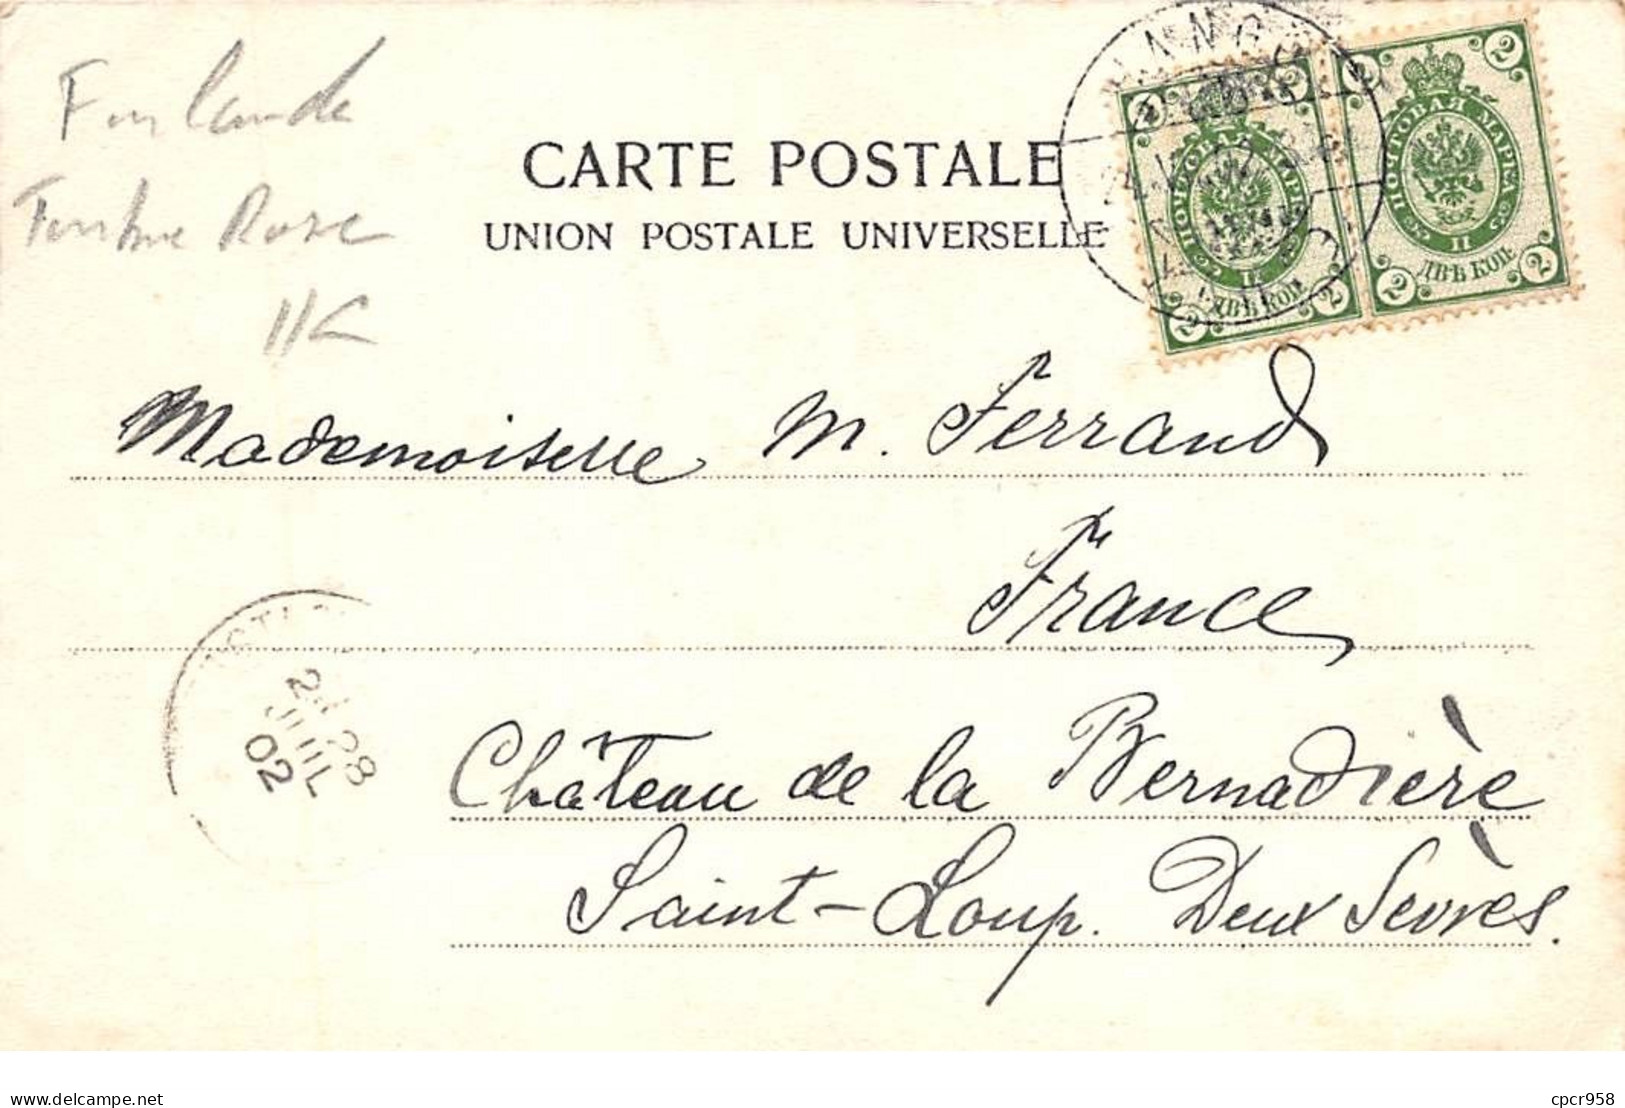 Finlande
Timbre Rose
CARTE POSTALE
UNION POSTALE UNIVERSELLE
2 2
ПОЧТОВАЯ МАРКА
II
ДВѢ КОП.
2 2
2 2
ПОЧТОВАЯ МАРКА
II
ДВѢ КОП.
2 2
Mademoiselle M. Ferrand
France
28
JUIL
02
Château de la Bernadière
Saint-Loup. Deux Sèvres.
cpcr958